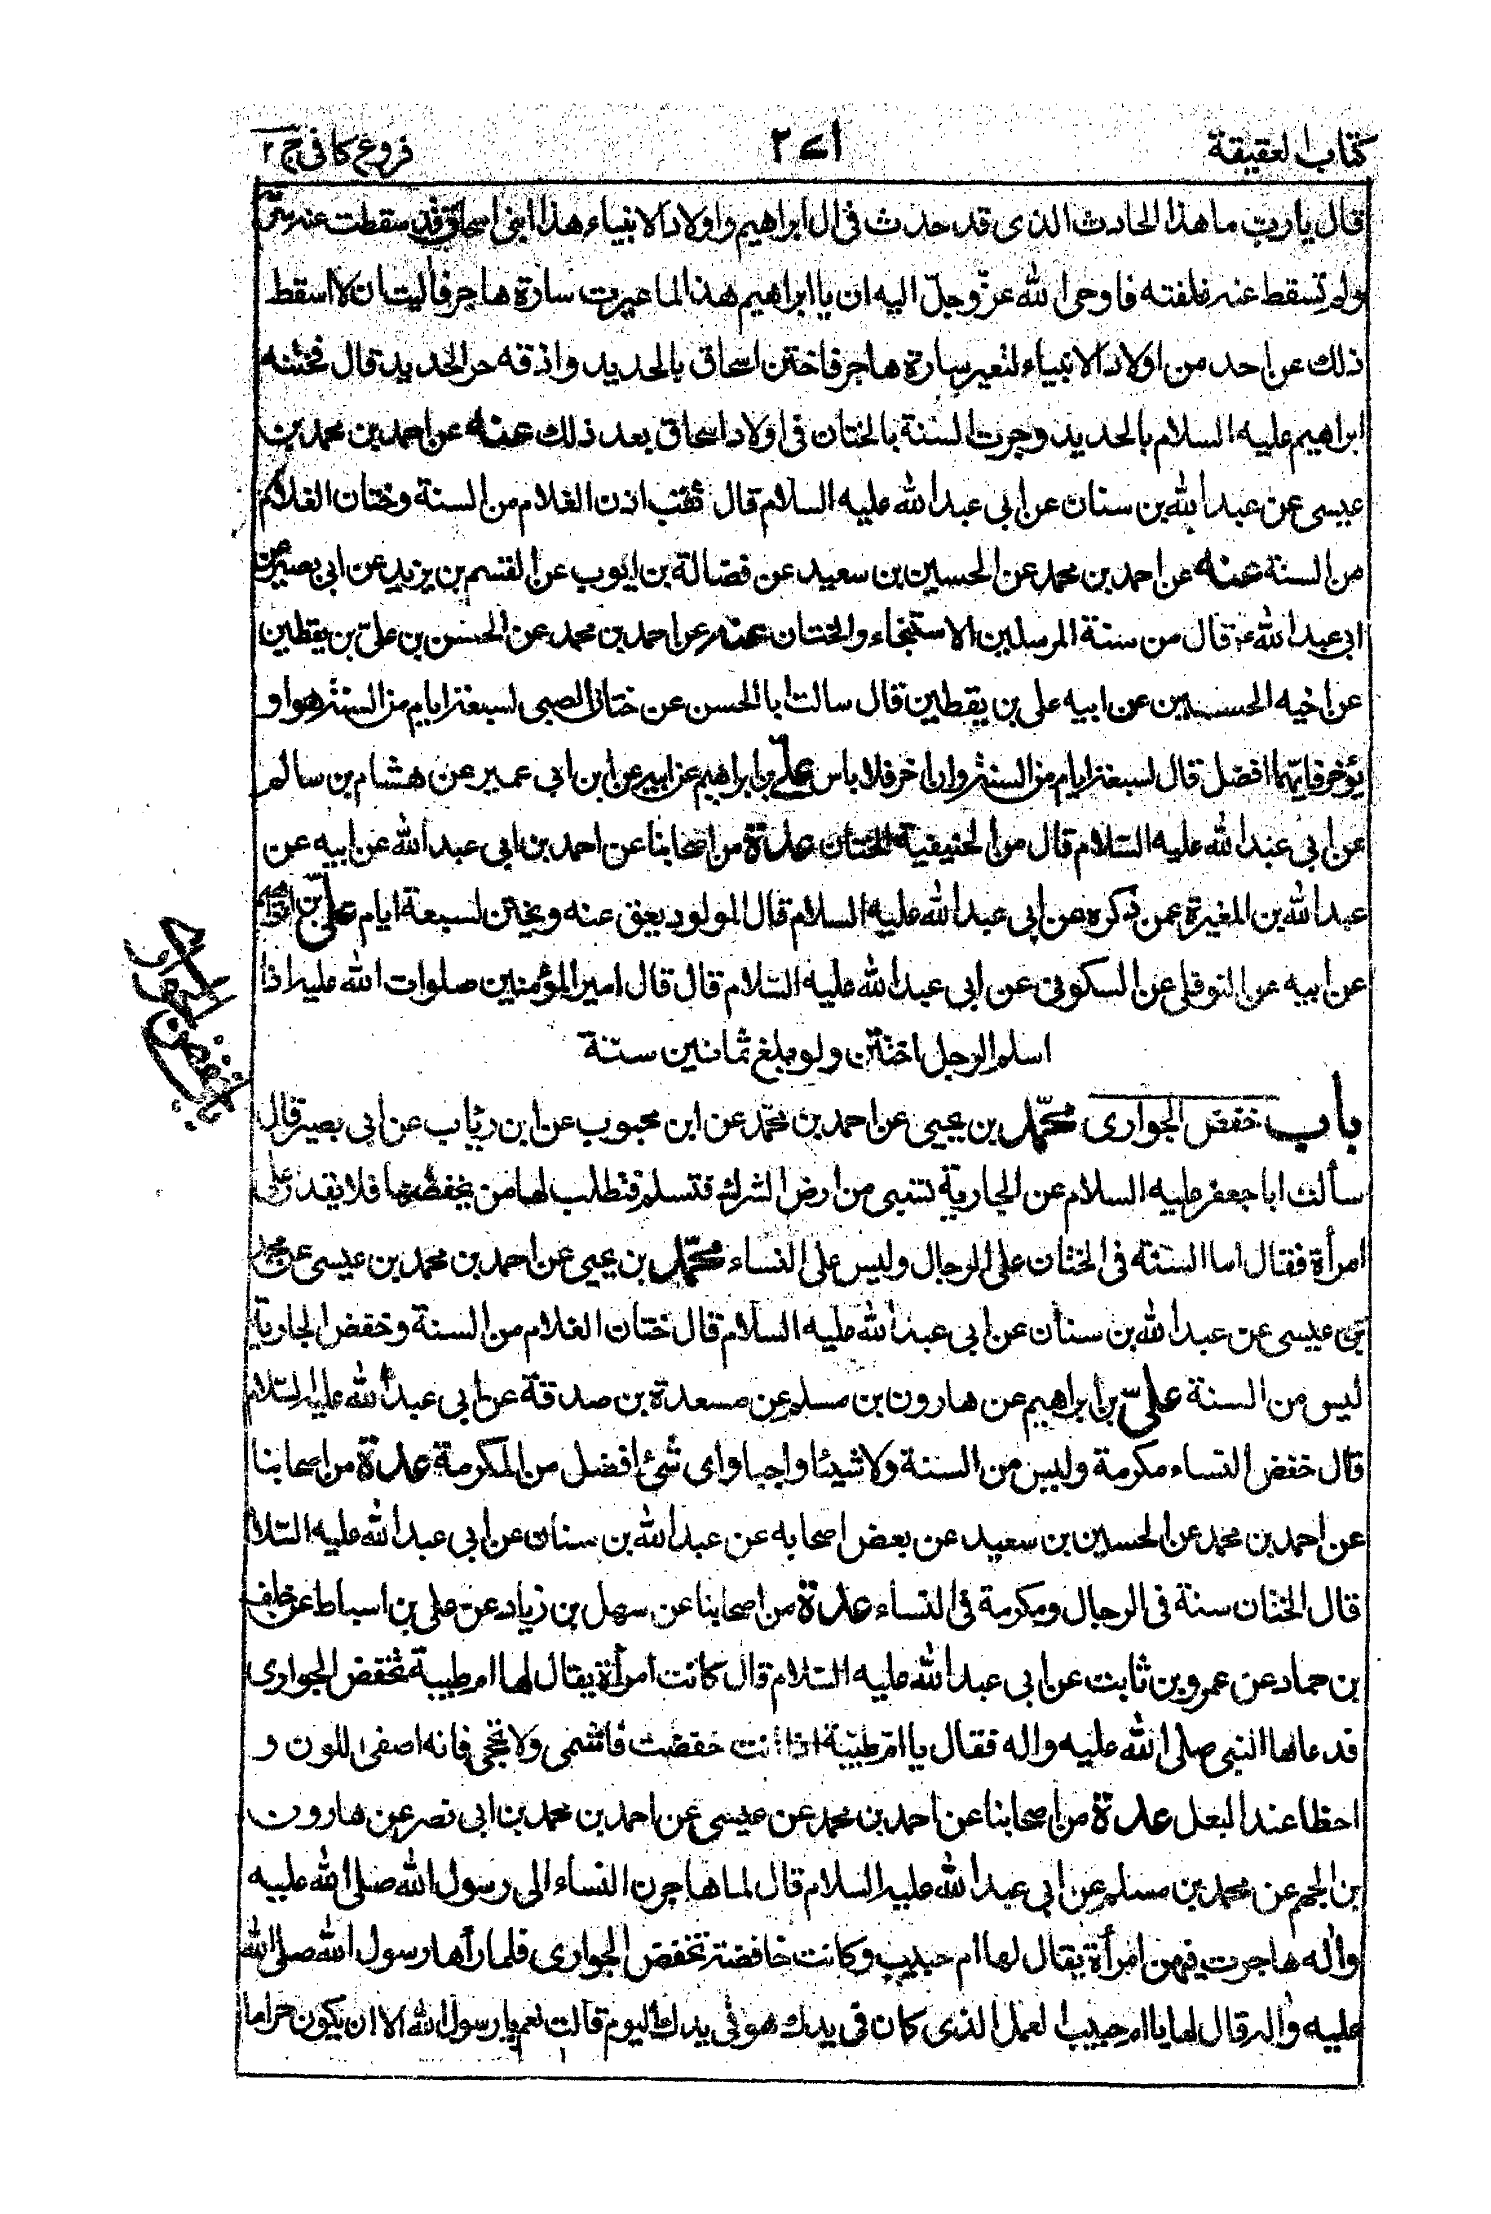 كتاب العقيقة
فروع كافى ج ٢
قال يا رب ما هذا الحادث الذى قد حدث فى ال ابراهيم واولاد الانبياء هذا ابنى اسحاق قد سقطت عنه سرته
ولم تسقط عنه غلفته فاوحى الله عزّ وجلّ اليه ان يا ابراهيم هذا لما عيرت سارة هاجر فاليت ان لا اسقط
ذلك عن احد من اولاد الانبياء لتعيير سارة هاجر فاختن اسحاق بالحديد واذقه حر الحديد قال فختنه
ابراهيم عليه السلام بالحديد وجرت السنة بالختان فى اولاد اسحاق بعد ذلك عنه عن احمد بن محمد بن
عيسى عن عبد الله بن سنان عن ابى عبد الله عليه السلام قال ثقب اذن الغلام من السنة وختان الغلام
من السنة عنه عن احمد بن محمد عن الحسين بن سعيد عن فضالة بن ايوب عن القسم بن يزيد عن ابى بصير عن
ابى عبد الله ع قال من سنة المرسلين الاستنجاء والختان عنه عن احمد بن محمد عن الحسن بن على بن يقطين
عن اخيه الحسين عن ابيه على بن يقطين قال سالت ابا الحسن عن ختان الصبى لسبعة ايام من السنة هو او
يؤخر فايهما افضل قال لسبعة ايام من السنة وان اخر فلا باس علىّ بن ابراهيم عن ابيه عن ابن ابى عمير عن هشام بن سالم
عن ابى عبد الله عليه السّلام قال من الحنيفية الختان عدة من اصحابنا عن احمد بن ابى عبد الله عن ابيه عن
عبد الله بن المغيرة عمن ذكره عن ابى عبد الله عليه السلام قال المولود يعق عنه ويختن لسبعة ايام علىّ بن ابراهيم
عن ابيه عن النوفلى عن السكونى عن ابى عبد الله عليه السّلام قال قال امير المؤمنين صلوات الله عليه اذا
اسلم الرجل اختتن ولو بلغ ثمانين سنة
باب خفض الجوارى محمّد بن يحيى عن احمد بن محمّد عن ابن محبوب عن ابن رئاب عن ابى بصير قال
سألت ابا جعفر عليه السلام عن الجارية تسبى من ارض الشرك فتسلم فتطلب لها من يخفضها فلا يقدر على
امرأة فقال اما السنة فى الختان على الرجال وليس على النساء محمّد بن يحيى عن احمد بن محمد بن عيسى عن محمد
بن عيسى عن عبد الله بن سنان عن ابى عبد الله عليه السلام قال ختان الغلام من السنة وخفض الجارية
ليس من السنة علىّ بن ابراهيم عن هارون بن مسلم عن مسعدة بن صدقة عن ابى عبد الله عليه السّلام
قال خفض النساء مكرمة وليس من السنة ولا شيئا واجبا واى شئ افضل من المكرمة عدة من اصحابنا
عن احمد بن محمد عن الحسين بن سعيد عن بعض اصحابه عن عبد الله بن سنان عن ابى عبد الله عليه السّلام
قال الختان سنة فى الرجال ومكرمة فى النساء عدة من اصحابنا عن سهل بن زياد عن على بن اسباط عن خلف
بن حماد عن عمرو بن ثابت عن ابى عبد الله عليه السّلام قال كانت امرأة يقال لها ام طيبة تخفض الجوارى
فدعاها النبى صلى الله عليه واله فقال يا ام طيبة اذا انت خفضت فاشمى ولا تجحفى فانه اصفى اللون و
احظا عند البعل عدة من اصحابنا عن احمد بن محمد عن عيسى عن احمد بن محمد بن ابى نصر عن هارون
بن الجهم عن محمد بن مسلم عن ابى عبد الله عليه السلام قال لما هاجرن النساء الى رسول الله صلى الله عليه
واله هاجرت فيهن امرأة يقال لها ام حبيب وكانت خافضة تخفض الجوارى فلما رأها رسول الله صلى الله
عليه واله قال لها يا ام حبيب العمل الذى كان فى يدك هو فى يدك اليوم قالت نعم يا رسول الله الا ان يكون حراما
باب خفض الجوارى